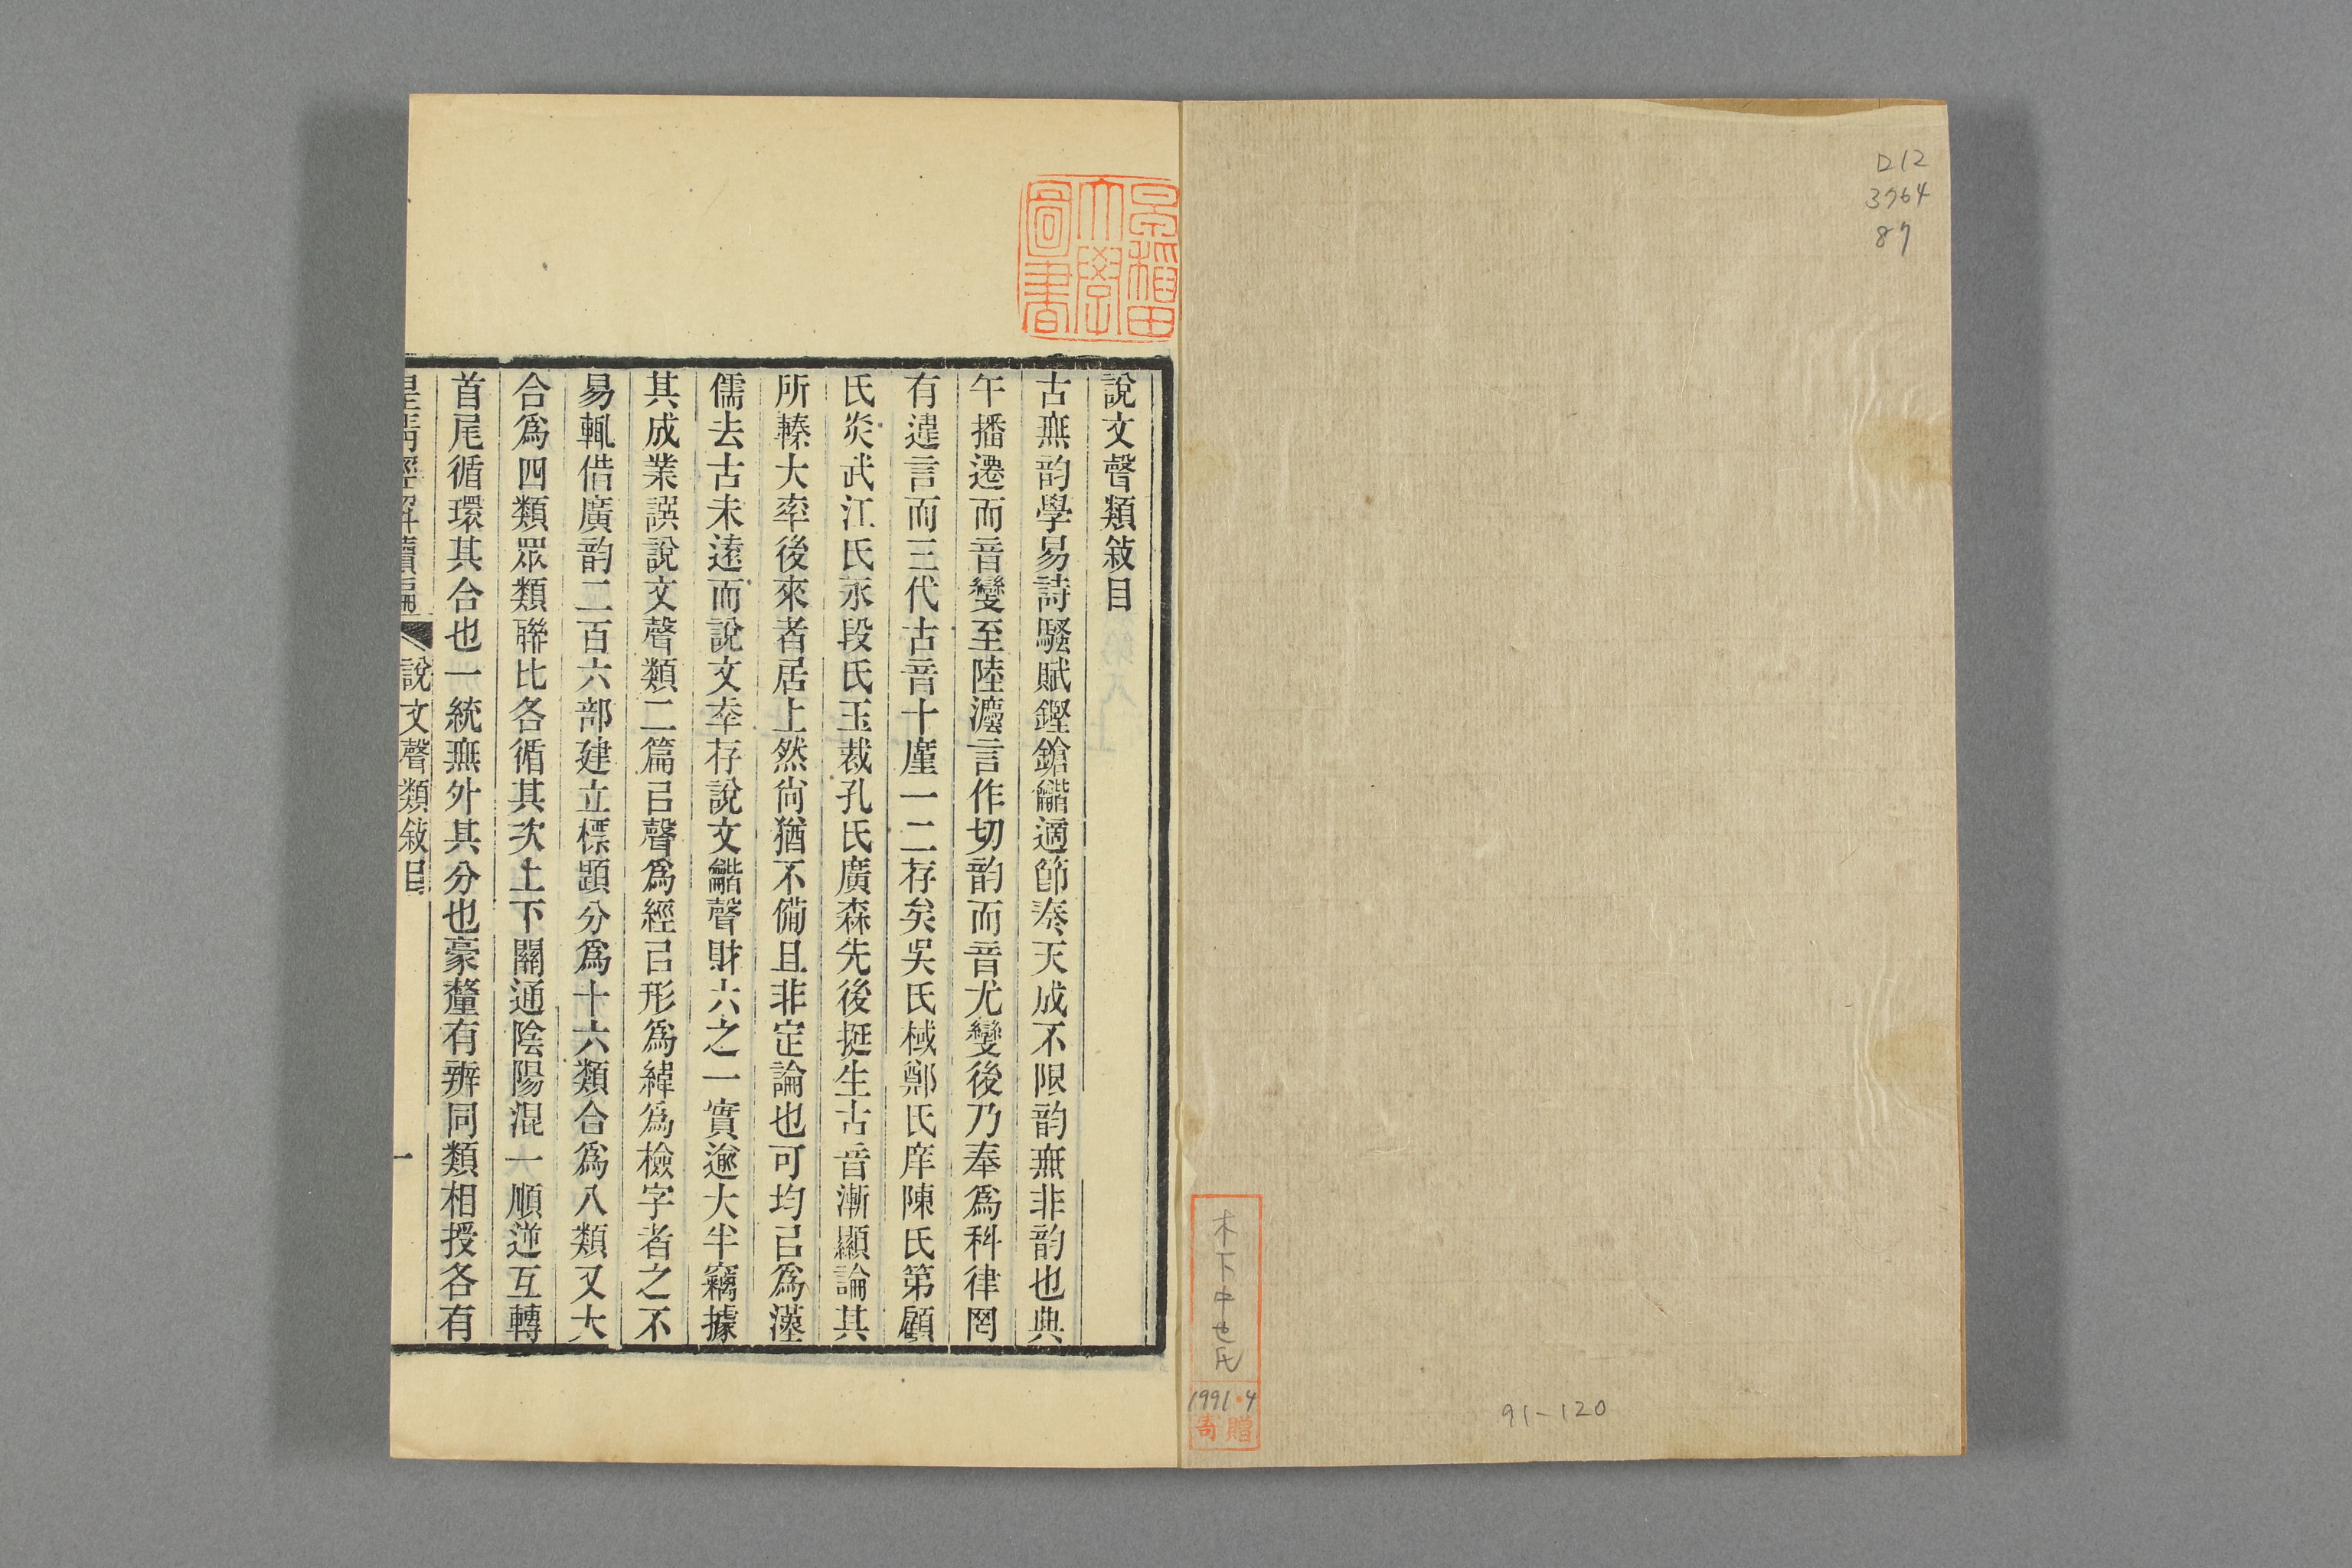 D12
3764
87
91-120
木下中也氏
1991・4
寄贈
早稲田
大學
圖書
說文聲類敍目
古無韵學易詩騷賦鏗鎗龤適節奏天成不限韵無非韵也典
午播遷而音變至陸灋言作切韵而音尤變後乃奉爲科律罔
有違言而三代古音十廑一二存矣吳氏棫鄭氏庠陳氏第顧
氏炎武江氏永段氏玉裁孔氏廣森先後挺生古音漸顯論其
所轃大率後來者居上然尙猶不備且非定論也可均㠯爲漢
儒去古未遠而說文㚔存說文龤聲財六之一實逾大半竊據
其成業譔說文聲類二篇㠯聲爲經㠯形爲緯爲檢字者之不
易輒借廣韵二百六部建立標題分爲十六類合爲八類又大
合爲四類眾類聯比各循其次土下關通陰陽混一順逆互轉
首尾循環其合也一統無外其分也豪釐有辨同類相授各有
皇淸經解續編 說文聲類敍目 一